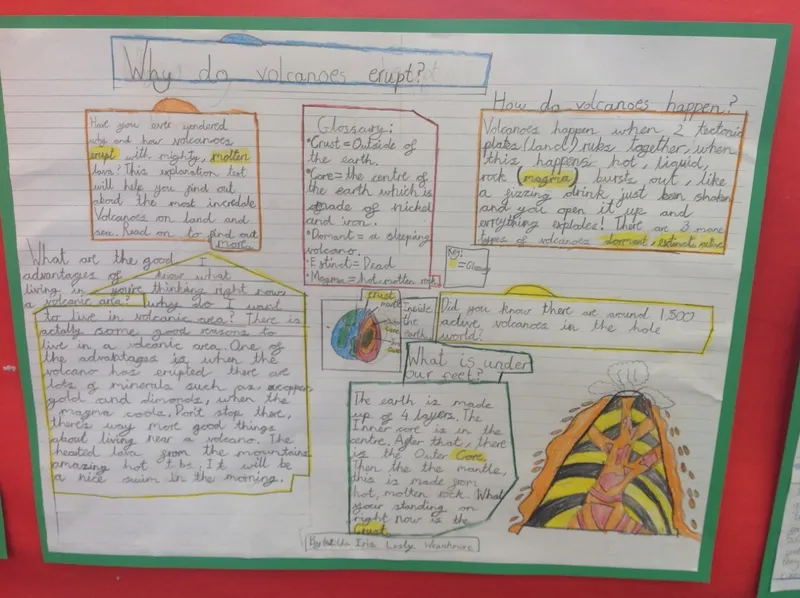 Why do volcanoes erupt?
Have you ever wondered
why and how volcanoes
erupt with mighty, molten
lava? This explanation text
will help you find out
about the most increduble
Volcanoes on land and
sea. Read on to find out
more...
Glossary:
•Crust = Outside of
the earth.
•Core = the centre of
the earth which is
made of nickel
and iron.
•Dormant = a sleeping
volcano.
•Extinct = Dead
•Magma = hot molten rock
Key:
= Glossary
How do volcanoes happen?
Volcanoes happen when 2 tectonic
plates (land) rubs together, when
this happens hot, liquid,
rock (magma) bursts out, like
a fizzing drink just been shaken
and you open it up and
everything explodes! There are 3 more
types of volcanoes dormant, extinct, active
What are the good
advantages of
living in
a volcanic area?
I
know what
you're thinking right now,
why do I want
to live in volcanic area? There is
actally some good reasons to
live in a volcanic area. One of
the advantages is when the
volcano has erupted there are
lots of minerals such as copper
gold and dimonds, when the
magma cools. Don't stop there,
there's way more good things
about living near a volcano. The
heated lava from the mountains
amazing hot tbs. It will be
a nice swim in the morning.
crust
mantle
Outer
Core
Inner
Core
Inside
the
earth
Did you know there are around 1,500
active volcanoes in the hole
world?
What is under
our feet?
The earth is made
up of 4 layers. The
Inner core is in the
centre. After that, there
is the Outer Core,
Then the the mantle,
this is made from
hot, molten rock. What
your standing on
right now is the
Crust
Iris Lesly